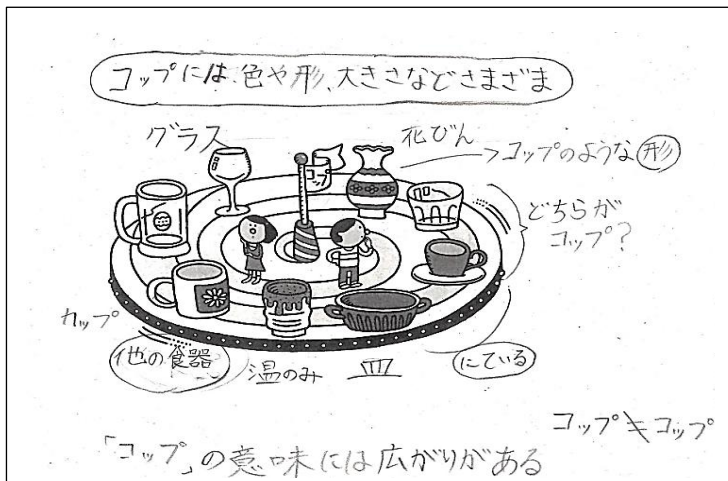 コップには色や形、大きさなどさまざま
グラス
花びん
→コップのような形
どちらが
コップ?
カップ
他の食器
湯のみ
皿
にている
コップ≠コップ
「コップ」の意味には広がりがある